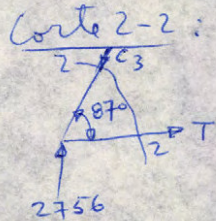 Corte 2-2:
2 C3
87° T
2
2756